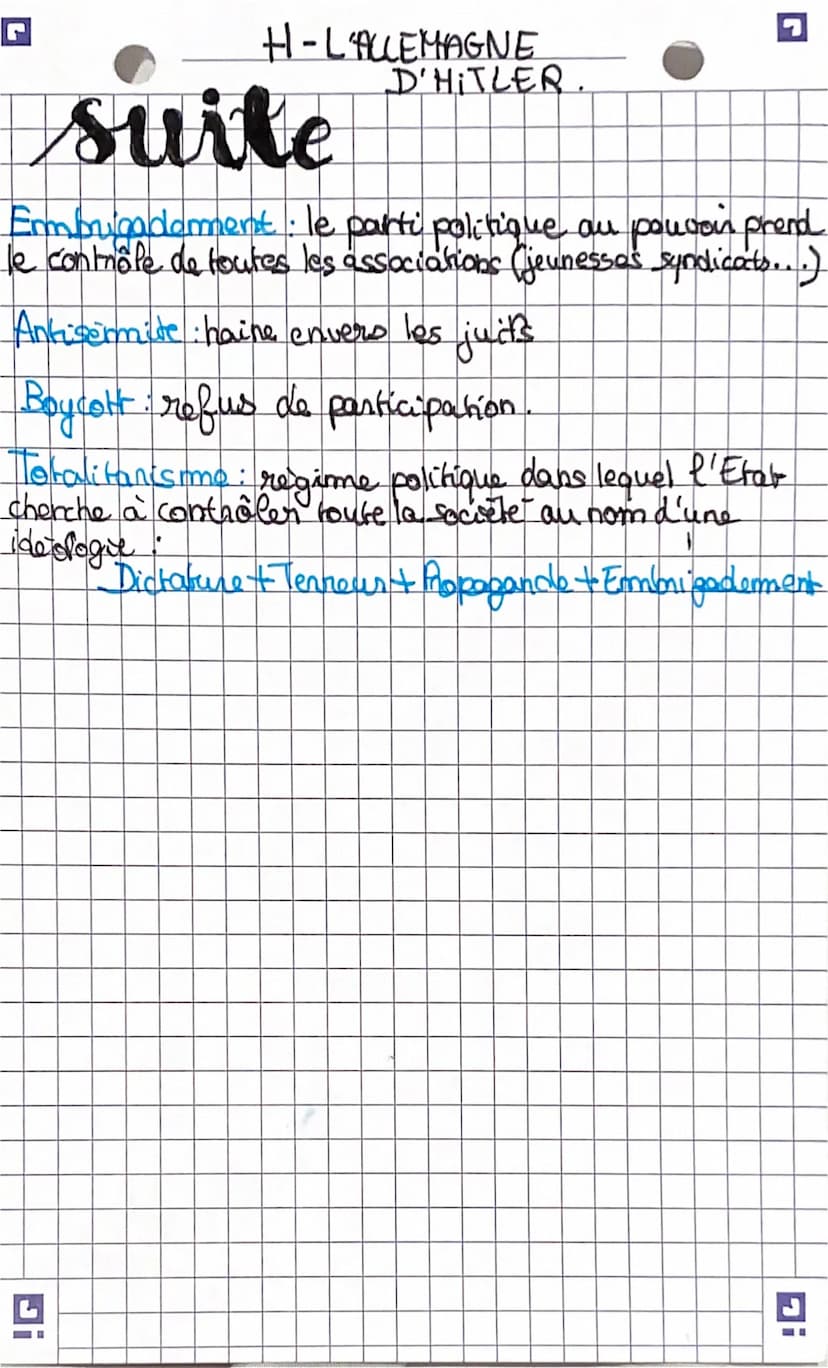 H-L'ALLEMAGNE
D'HITLER.
suite
Embrigadement : le parti politique au pouvoir prend
le contrôle de toutes les associations (jeunesses syndicats...)
Antisémite : haine envers les juifs
Boycott : refus de participation.
Totalitarisme : régime politique dans lequel l'Etat
cherche à contrôler toute la société au nom d'une
idéologie :
Dictature + Terreur + Propagande + Embrigadement